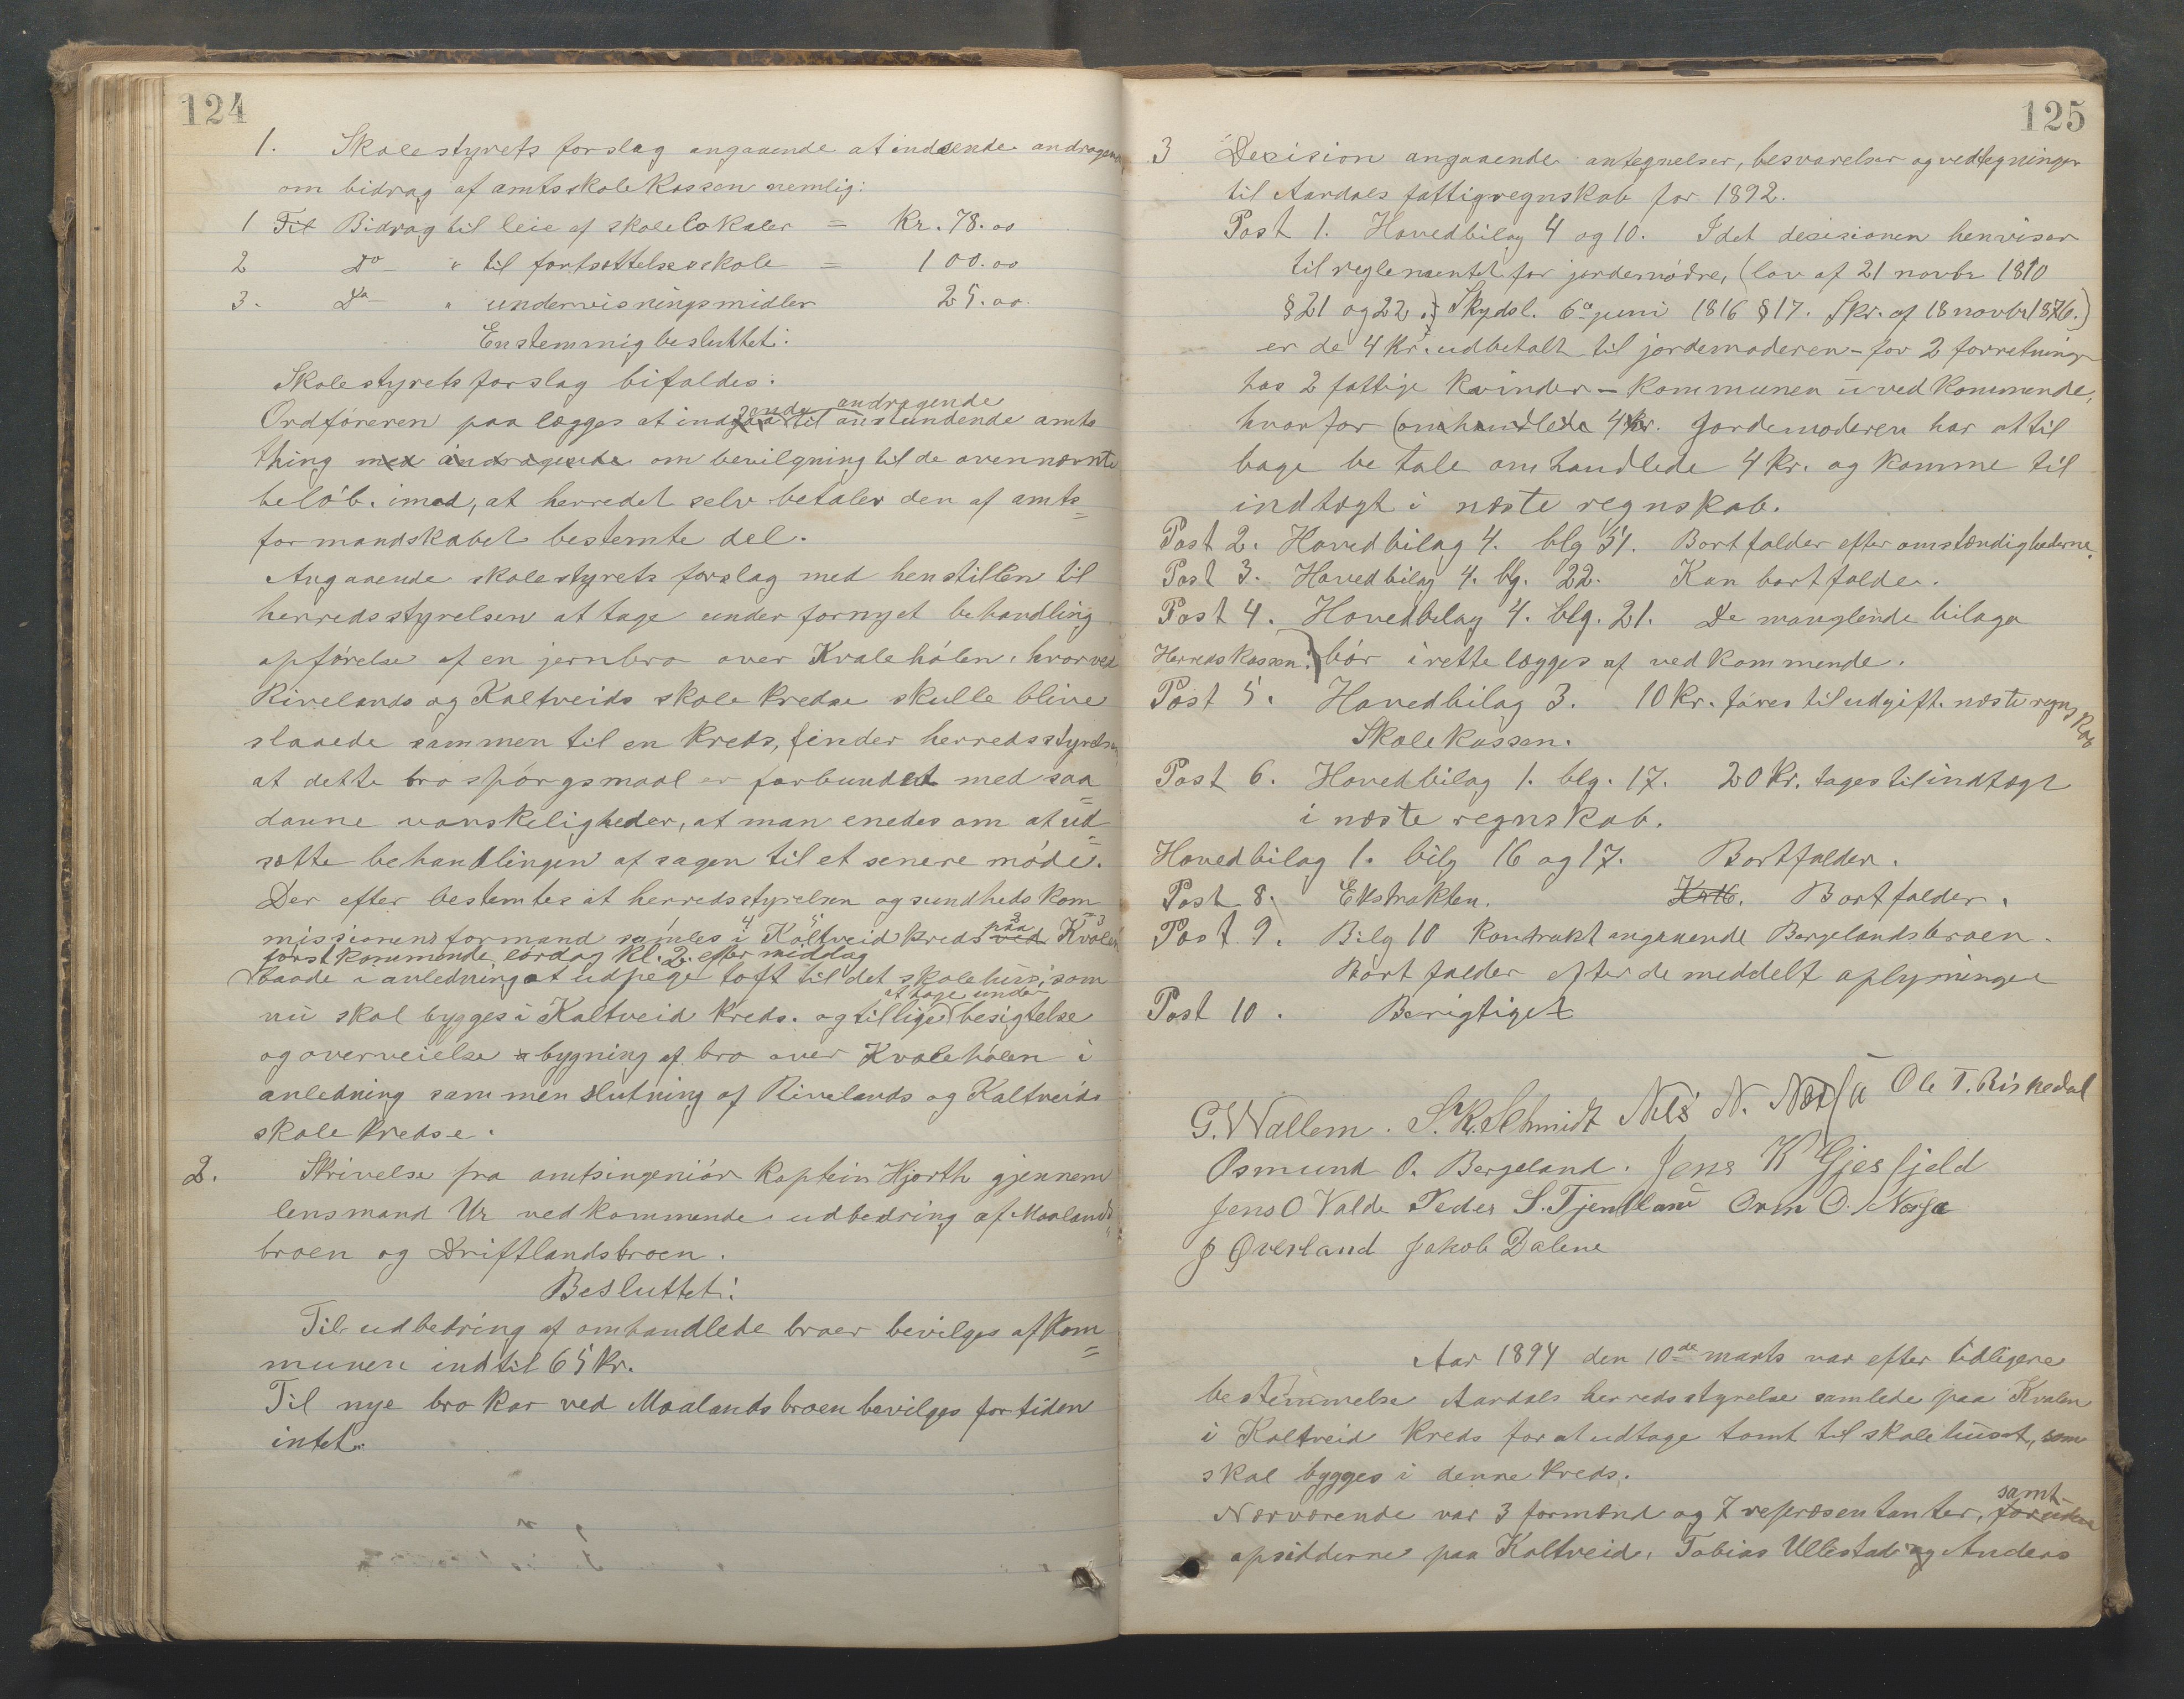 124
1. Skolestyrets forslag angaaende at indsende andragende
om bidrag af amtsskolekassen nemlig:
1 Til Bidrag til leie af skolelokaler = Kr. 78.00
2 Do " til fortsættelsesskole = 100.00
3. Do " undervisningsmidler 25.00
Enstemmig besluttet:
Skolestyrets forslag bifaldes.
andragende
Ordføreren paalægges at indsende til anstundende amts
thing med andragende om bevilgning til de ovennævnte
beløb. imod, at herredet selv betaler den af amts=
formandskabet bestemte del.
Angaaende skolestyrets forslag med henstillen til
herredsstyrelsen at tage under fornyet behandling
opførelse af en jernbro over Kvalehølen, hvorved
Rivelands og Kaltveids skolekredse skulle blive
slaaede sammen til en kreds, finder herredsstyrelsen
at dette brospørgsmaal er forbundet med saa=
danne vanskeligheder, at man enedes om at ud=
sætte behandlingen af sagen til et senere møde.
Der efter bestemtes at herredsstyrelsen og sundhedskom
missionens formand samles i Kaltveid kreds paa ved Kvalen
først kommende lördag Kl. 2. efter middag
baade i anledning at udpege toft til det skolehus, som
at tage under
nu skal bygges i Kaltveid kreds. og tillige besigtelse
og overveielse bygning af bro over Kvalehølen i
anledning sammenslutning af Rivelands og Kaltveids
skolekredse.
2. Skrivelse fra amtsingeniør kaptein Hjorth gjennem
lensmand Ur vedkommende udbedring af Maalands
broen og Driftlandsbroen.
Besluttet:
Til udbedring af omhandlede broer bevilges af Kom=
munen indtil 65 kr.
Til nye brokar ved Maalandsbroen bevilges for tiden
intet.
125
3 Decision angaaende antegnelser, besvarelser og vedtegninger
til Aardals fattigregnskab for 1892.
Post 1. Hovedbilag 4 og 10. Idet decisionen henviser
til reglementet for jordemødre, (lov af 21 novbr 1810
§21 og 22. Skydsl. 6te juni 1816 §17. Skr. af 18 novbr 1876.)
er de 4 kr. udbetalt til jordemoderen - for 2 forretninger
hos 2 fattige kvinder - kommunen uvedkommende,
hvorfor (omhandlede 4 kr. Jordemoderen har at til
bage betale omhandlede 4 kr. og komme til
indtægt i næste regnskab.
Post 2. Hovedbilag 4. blg 51. Bortfalder efter omstændighederne.
Post 3. Hovedbilag 4. blg. 22. Kan bortfalde.
Post 4. Hovedbilag 4. blg. 21. De manglende bilage
Herredskassen. bør irettelægges af vedkommende.
Post 5. Hovedbilag 3. 10 Kr. føres til udgift. næste regnskab
Skolekassen.
Post 6. Hovedbilag 1. blg. 17. 20 kr. tages til indtægt
i næste regnskab.
Hovedbilag 1. bilg 16 og 17. Bortfalder.
Post 8. Ekstrakten. Bortfalder.
Post 9. Bilg 10 kontrakt angaaende Bergelandsbroen.
Bortfalder efter de meddelt oplysninger
Post 10. Berigtiget
G. Wallem. S. K. Schmidt Nils N. Nesse Ole T. Riskedal
Osmund O. Bergeland. Jens K Gjesfjeld
Jens O Valde Peder S. Tjentland Orm O. Nesse
J Øverland Jakob Dalene
Aar 1894 den 10de marts var efter tidligere
bestemmelse Aardals herredsstyrelse samlede paa Kvalen
i Kaltveid kreds for at udtage tomt til skolehuset, som
skal bygges i denne kreds.
samt
Nærværende var 3 formænd og 7 repræsentanter, foruden
opsidderne paa Kaltveid, Tobias Ullestad og Anders